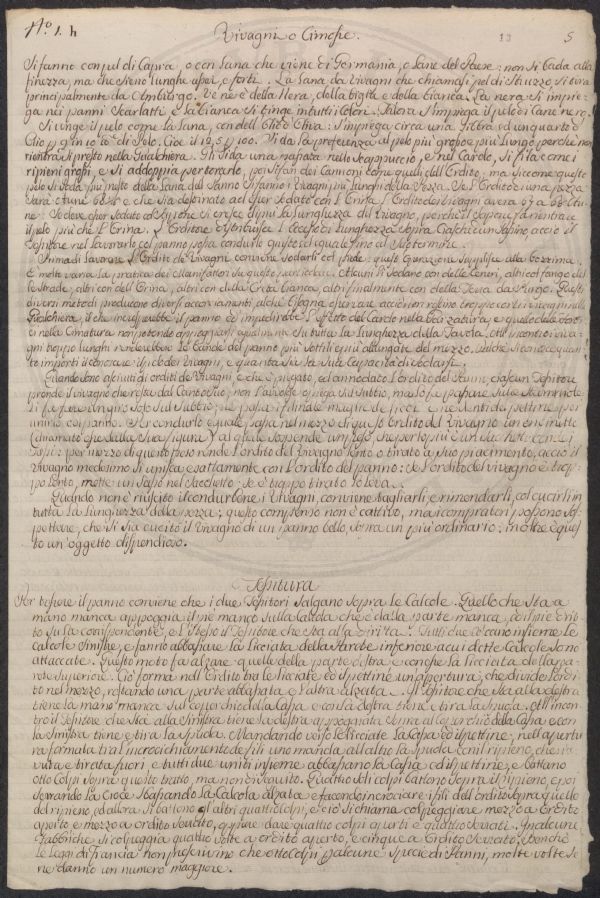 N.º 1. h
Vivagni o Cimosse.
13
5
Si fanno con pel di Capra, o con Lana che viene di Germania, o Lane del Paese: non si bada alla
finezza, ma che sieno lunghe aspre, e forti. La Lana da Vivagni che chiamasi pel di Struzzo si tira
principalmente da Amburgo. Ve ne è della Nera, della bigia e della bianca. La nera si impie-
ga nei panni Scarlatti e la bianca si tinge in tutti i colori. Talora s'impiega il pelo di Cane nero.
Si unge il pelo come la Lana, con dell'Olio d'Oliva: s'impiega circa una libbra ed un quarto d'
Olio per ogni 10 lb di Pelo. Cioè il 12,5 p 100. Si da la preferenza al pelo più grosso e più Lungo perchè non
rientra sì presto nella Gualchiera. Gli si da una passata nello Scappuccio, e nel Cardo, si fila come i
ripieni grossi, e si addoppia per torcerlo, poi si fan dei Cannoni come quelli dell'Ordito; ma siccome questo
pelo si soda più presto della Lana del Panno si fanno i vivagni più lunghi della Pezza. Se l'Ordito d'una pezza
sarà Aune 62 e che sia destinato ad esser sodato con l'Orina l'Ordito dei Vivagni avera 67 a 68 Au-
ne: Se deve esser sodato col Sapone si cresce di più la lunghezza del Vivagno, perchè il Sapone fa rientrare
il pelo più che l'Orina. L'Orditore distribuisce l'eccesso di lunghezza sopra ciascheduna Sapino acciò il
Tessitore nel lavorarlo col panno possa condurlo giusto ed eguale fino al suo termine.
Prima di lavorare l'Ordito de' Vivagni conviene Sodarli coi piedi: questa operazione supplisce alla bozzima.
È molto varia la pratica dei Manifattori su questo particolare. Alcuni li Sodano con delle Ceneri, altri col fango del-
le Strade, altri con dell'Orina, altri con della Creta bianca, altri finalmente con della Terra da Purgo. Questi
diversi metodi producono diversi accorciamenti, al che bisogna osservare acciò non restino troppo corti i vivagni nella
Gualchiera, il che increspberebbe il panno ed impedirebbe l'effetto del Cardo nella Garzatura, e quello delle Forbi-
ci nella Cimatura non potendo appoggiarsi egualmente su tutta la lunghezza della Tavola. All'incontro i viva-
gni troppo lunghi renderebbero le bande del panno più sottili e più allungate del mezzo. Dal che si conosce quan-
to importi il conoscere il pelo dei Vivagni, e quanta sia la sua capacità di sodarsi.
Quando sono asciutti gli orditi de' Vivagni, e che è piegato, ed annodato l'ordito del Panno, ciascun Tessitore
prende il vivagno che resta dal Canto suo, non l'avvolge o piega sul Subbio, ma lo fa passare sulla Stamenole
si fa fare un giro solo sul Subbio: si passa il finale maglie de' licci e ne' denti del pettine per
unirlo col panno. Per condurlo eguale passa nel mezzo di questo ordito del Vivagno un'encinetto
(chiamato Esse dalla sua figura) al quale sospende un peso, che per lo più è un Sacchetto con dei
Sassi: per mezzo di questo peso rende l'ordito del Vivagno lento o tirato a suo piacimento, acciò il
Vivagno medesimo si unisca esattamente con l'ordito del panno: se l'ordito del vivagno è trop-
po lento, mette un Sasso nel sacchetto: se è troppo tirato lo leva.
Quando non è riuscito il condur bene i Vivagni, conviene tagliarli, e rimondarli, col cucirli in
tutta la lunghezza della pezza; questo compenso non è cattivo, ma i compratori possono sos-
pettare, che si sia cucito il Vivagno di un panno bello, sovra un più ordinario: inoltre è ques-
to un'oggetto dispendioso.
Tessitura
Per tessere il panno conviene che i due Tessitori salgano sopra le Calcole. Quello che sta a
mano manca appoggia il piè manco sulla Calcola che è dalla parte manca, ed il piè dirit-
to su la corrispondente, e l'istesso il Tessitore che sta alla diritta. Tutti due calcano insieme le
calcole sinistre, e fanno abbassare la licciata della Parte inferiore a cui dette Calcole sono
attaccate. Questo moto fa alzare quelle della parte destra e con esse la licciata della par-
te superiore. Ciò forma nell'Ordito tra le licciate ed il pettine un'apertura, che divide l'ordi-
to nel mezzo, restando una parte abbassata e l'altra alzata. Il Tessitore che sta alla destra
tiene la mano manca sul coperchio della Cassa e con la destra tiene e tira la Spuola. All'incon-
tro il Tessitore che sta alla Sinistra tiene la destra appoggiata sovra al coperchio della Cassa e con
la Sinistra tiene e tira la Spuola. Mandando verso le licciate la Cassa ed il pettine, nell'apertu-
ra formata tra l'incrocicchiamento de' fili uno manda all'altro la Spuola con il ripieno, che ri-
cevuta e tirata fuori, e tutti due uniti insieme abbassano la Cassa ed il pettine, e battano
otto Colpi sopra questo tratto, ma non di seguito. Quattro di colpi battono sopra il ripieno, e poi
serrando la Croce abbassando la Calcola alzata e facendo incrociare i fili dell'ordito sopra quello
del ripieno, ed allora si battono gli altri quattro Colpi, e ciò si chiama colpeggiare mezzo a Ordito
aperto e mezzo a ordito serrato, oppure dare quattro colpi aperti e quattro serrati. In alcune
Fabbriche si colpeggia quattro volte a ordito aperto, e cinque a Ordito serrato. Benchè
le Leggi di Francia non prescrivino che otto colpi per alcune Specie di Panni, molte volte se
ne danno un numero maggiore.